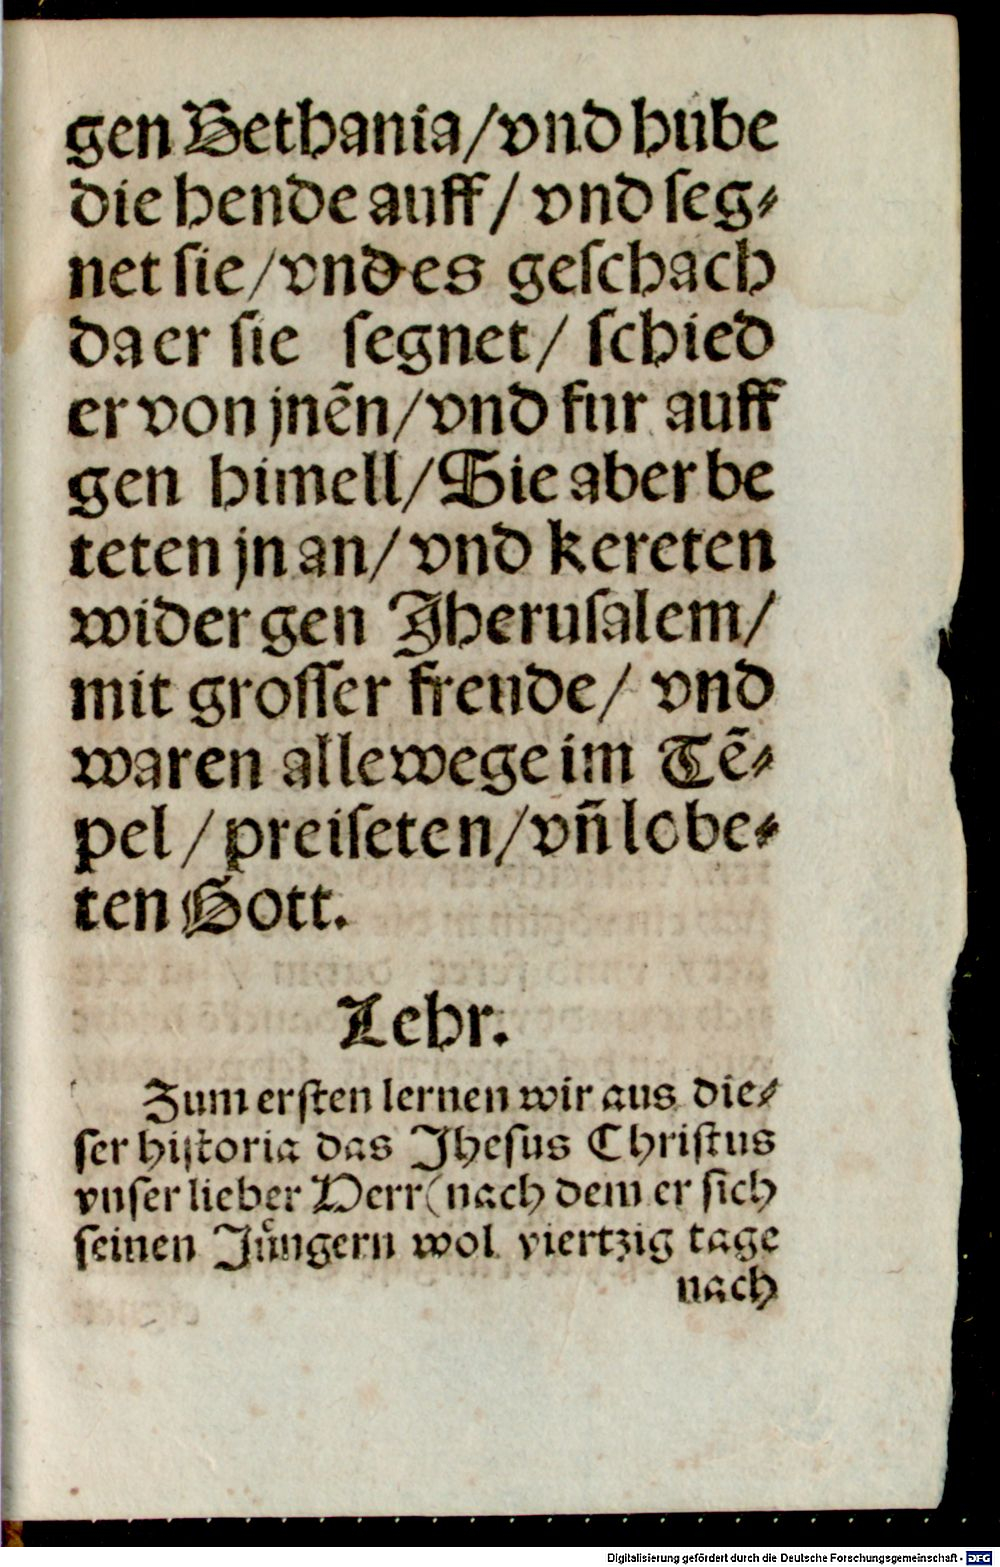 gen Bethania/vnd hube
die hende auff/ vnd ſeg⸗
net ſie/vnd es geſchach
da er ſie ſegnet/ ſchied
er von jnẽn/vnd fur auff
gen himell/Sie aber be
teten jn an/ vnd kereten
wider gen Jheruſalem/
mit groſſer freude/ vnd
waren allewege im Tẽ⸗
pel/preiſeten/vñ lobe⸗
ten Gott.
Lehr.
Zum erſten lernen wir aus die⸗
ſer hiſtoria das Jheſus Chriſtus
vnſer lieber Herr(nach dem er ſich
ſeinen Juͤngern wol viertzig tage
nach
Digitalisierung gefördert durch die Deutsche Forschungsgemeinschaft - DFG